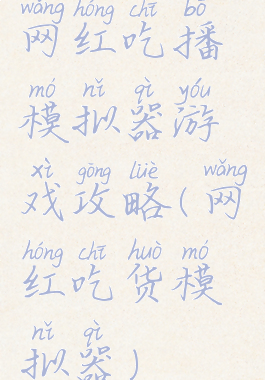 wǎng hóng chī bō
网红吃播
mó nǐ qì yóu
模拟器游
xì gōng lüè wǎng
戏攻略(网
hóng chī huò mó
红吃货模
nǐ qì
拟器)